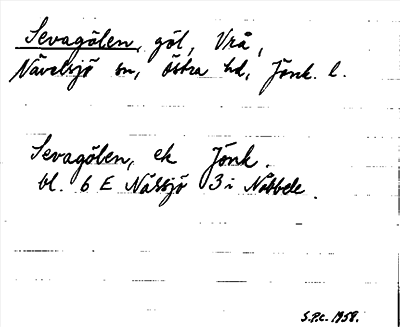 Sevagölen, göl, Vrå,
Nävelsjö sn, Östra hd, Jönk. l.
Sevagölen, ek Jönk.
bl. 6 E Nässjö 3 i Nåbbele.
S.P.C. 1958.